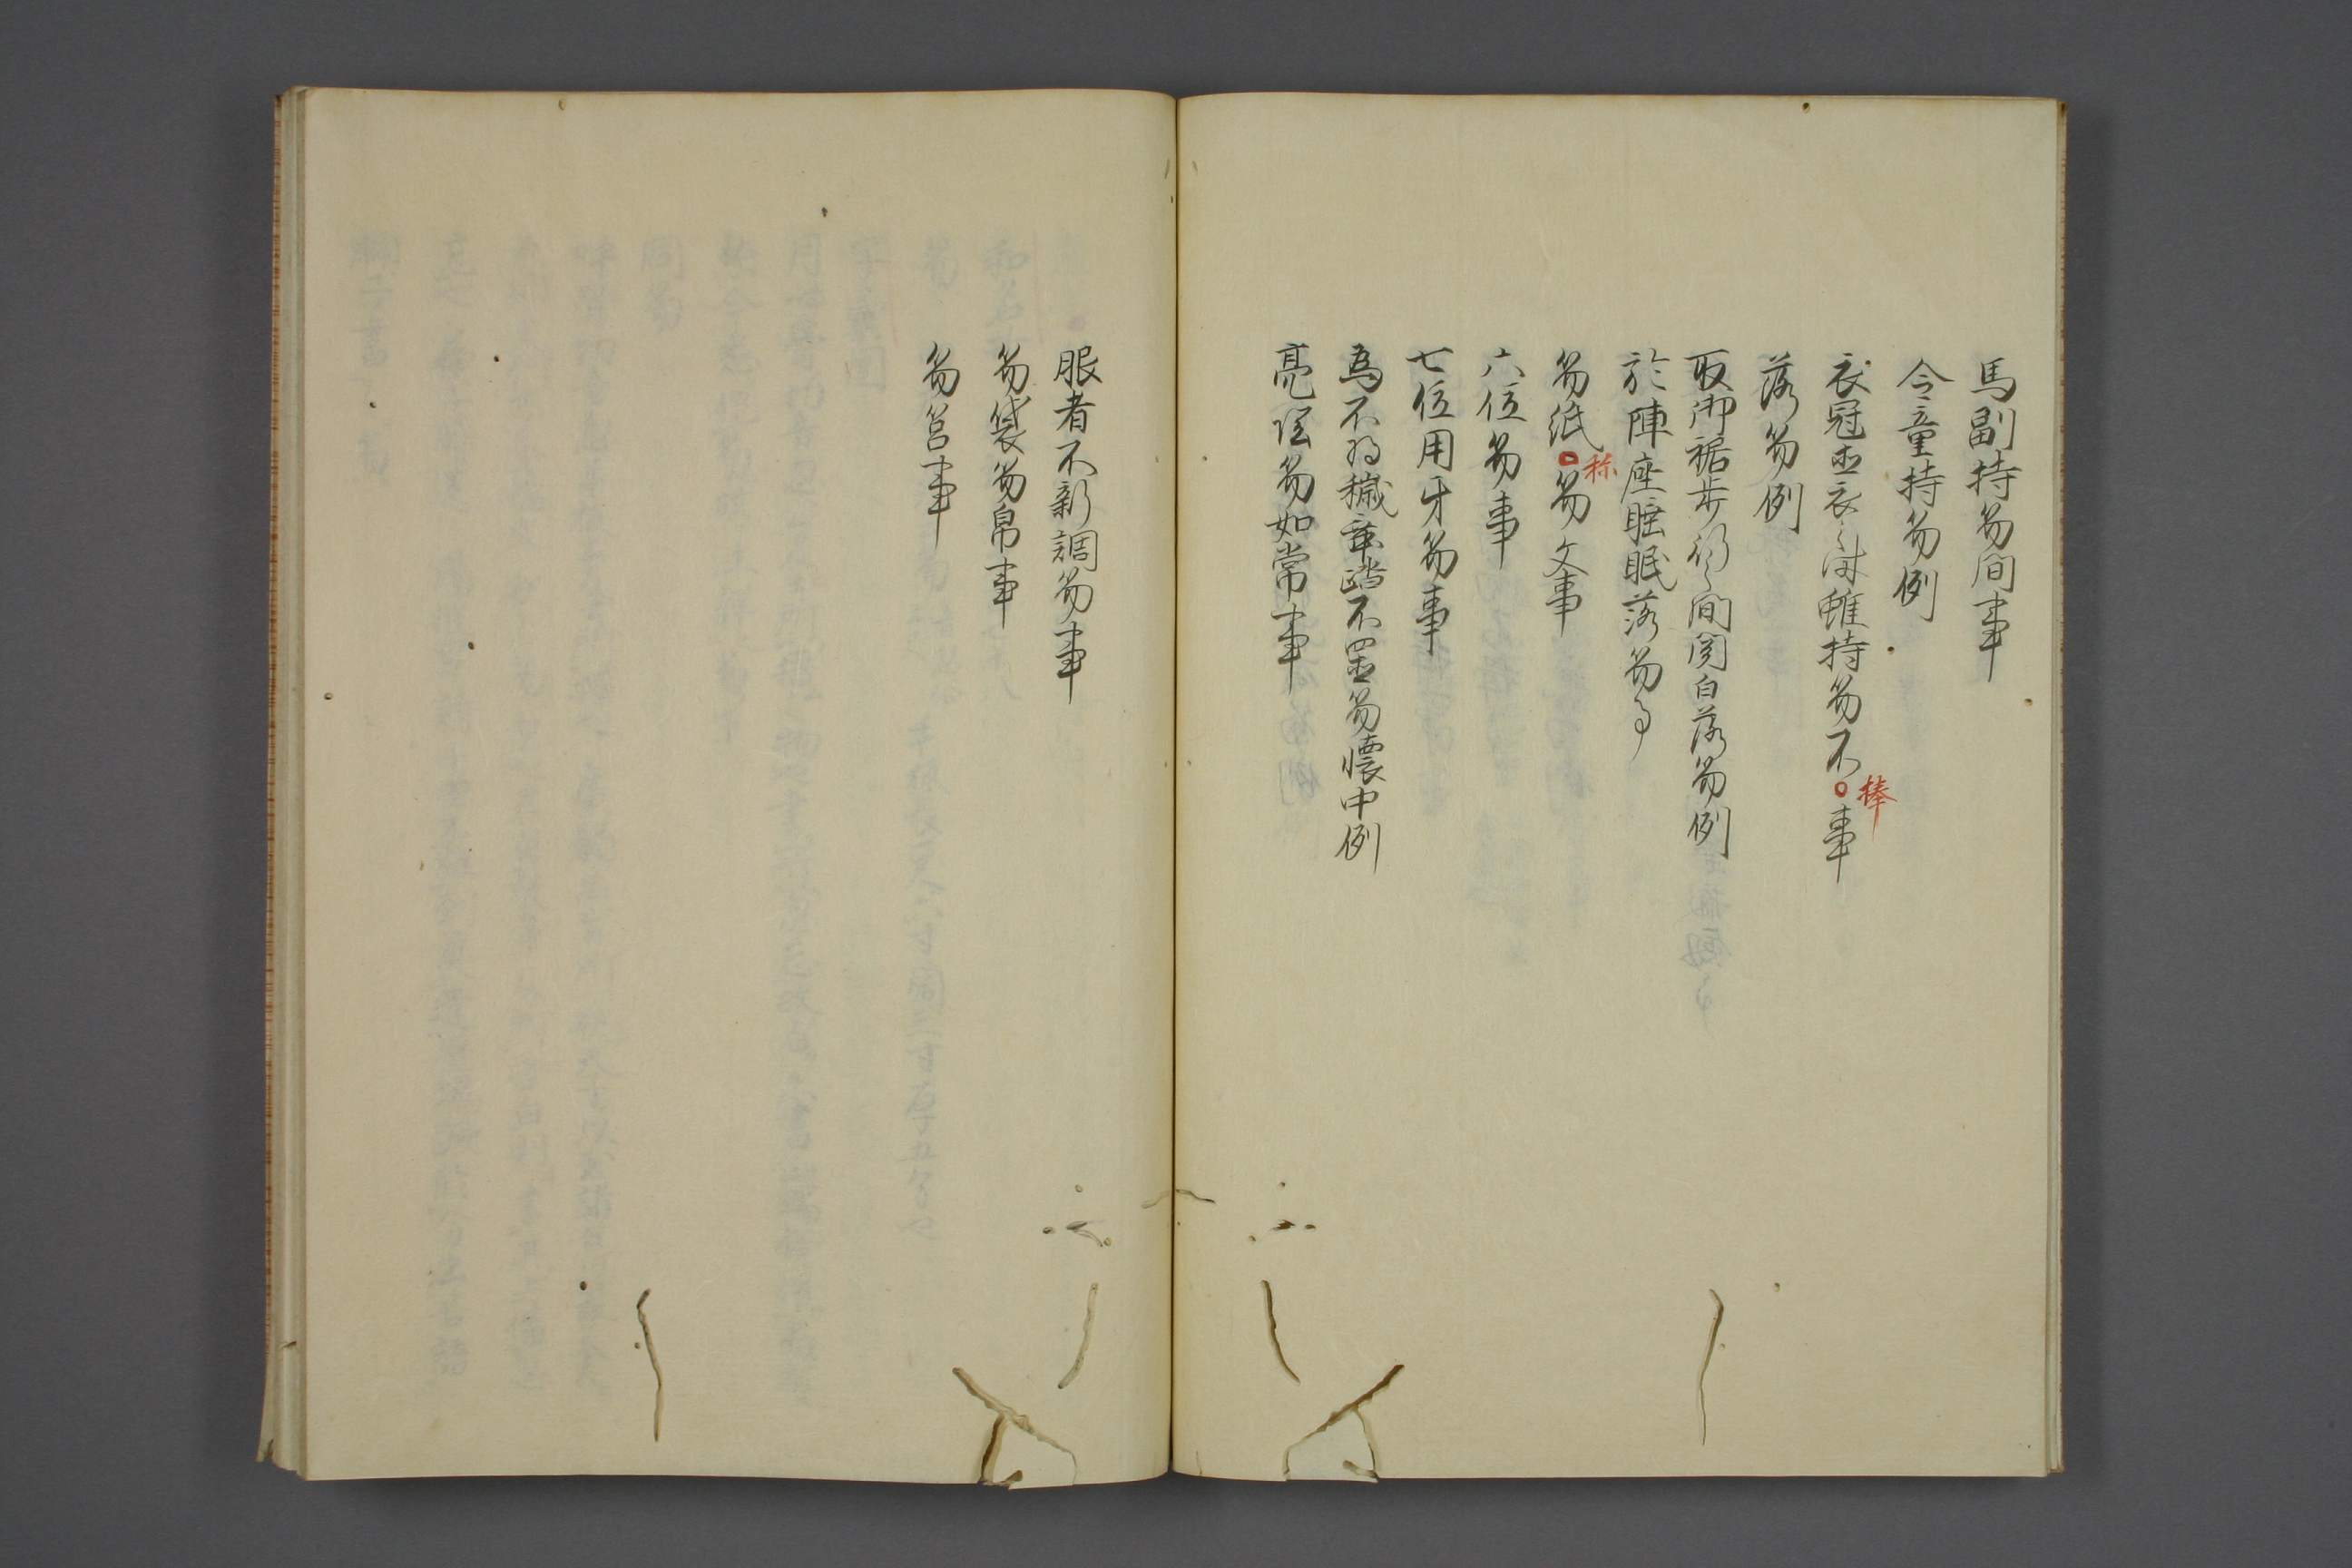 馬副持笏間事
令童持笏例
衣冠直衣之時雖持笏不○捧事
落笏例
取御裾歩行之間関白落笏例
於陣座睡眠落笏事
笏紙○称笏文事
六位笏事
七位用牙笏事
為不為穢乗踏不置笏懐中例
亮闇笏如常事
服者不新調笏事
笏袋笏帛事
笏筥事